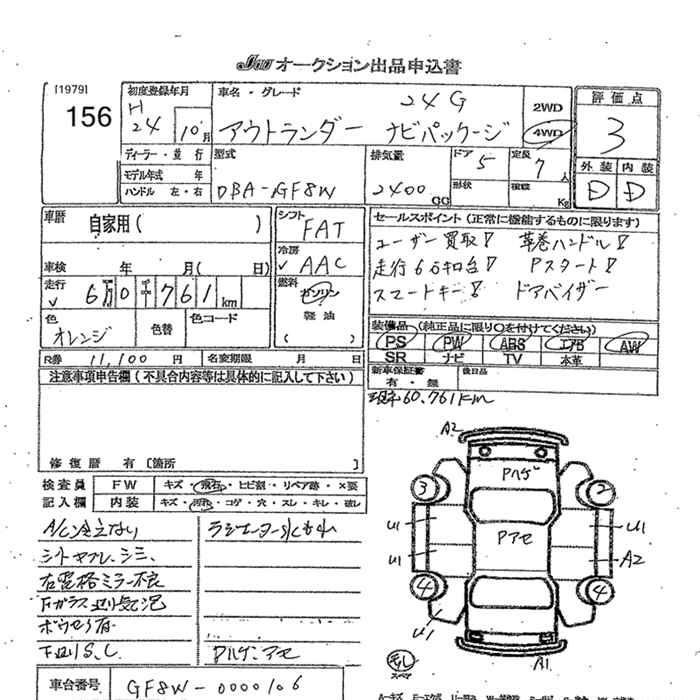 JU オークション出品申込書
[1979]
156
初度登録年月
H
24 10月
車名・グレード
24G
アウトランダー ナビパッケージ
2WD
4WD
評価点
3
外装 内装
D D
ディーラー・並行
モデル年式 年
ハンドル 左・右
型式
DBA-GF8W
排気量
2400 CC
ドア 5
形状
定員 7人
積載 Kg
車歴
自家用( )
車検 年 月( 日)
走行
✓ 6万0千761km
色
オレンジ
色替
色コード
シフト
FAT
冷房
✓ AAC
燃料
ガソリン
軽油
( )
セールスポイント(正常に機能するものに限ります)
ユーザー買取! 革巻ハンドル!
走行6万キロ台! Pスタート!
スマートキー! ドアバイザー
装備品(純正品に限り○を付けてください)
PS PW ABS エアB AW
SR ナビ TV 本革
R券 11,100円 名変期限 月 日
新車保証書
有・無
後日品
注意事項申告欄(不具合内容等は具体的に記入して下さい)
現車60,761km
修復歴 有〔箇所 〕
検査員 FW キズ・飛石・ヒビ割・リペア跡・X要
記入欄 内装 キズ・汚れ・コゲ・穴・スレ・キレ・破レ
A/C冷えない
ラジエーター水もれ
シートヤブレ、シミ、
右電格ミラー不良
Fガラス
下回りS、C
Pルゲ、アセ
車台番号 GF8W-0000106
A2
Pルゲ
3 2
U1 U1
Pアセ
U1 A2
4 4
U1
A1